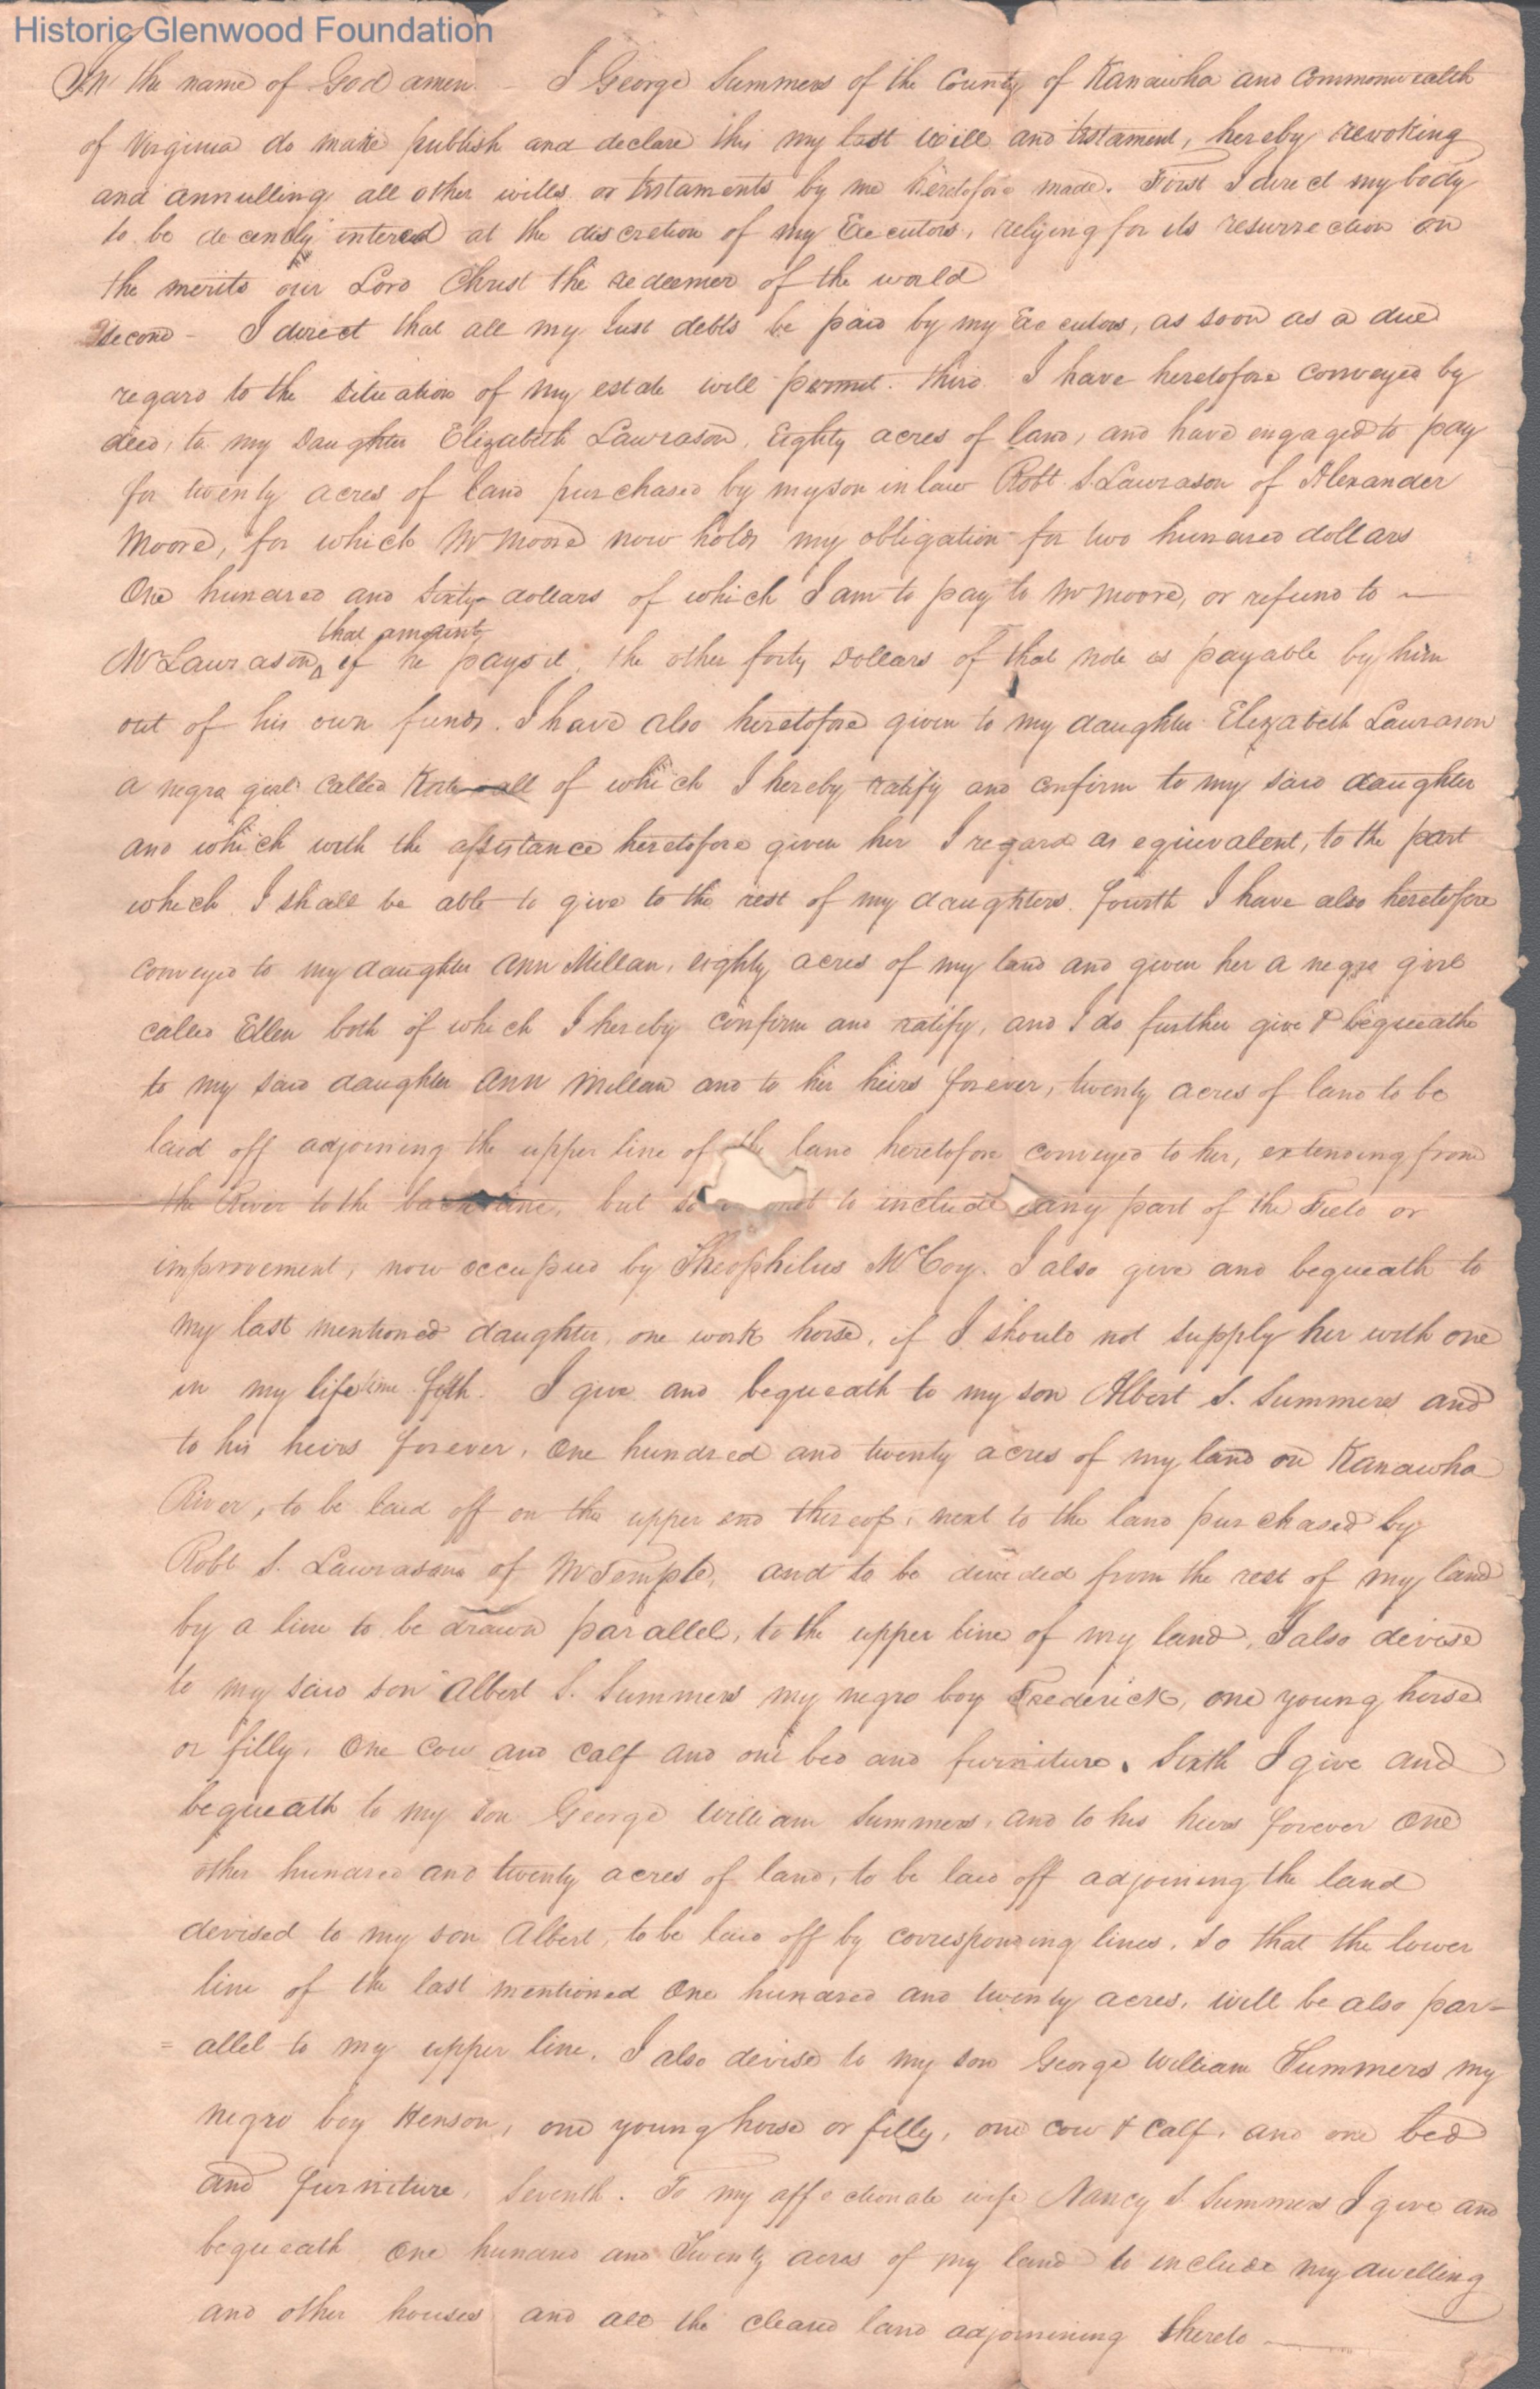 Historic Glenwood Foundation
In the name of God amen - I George Summers of the County of Kanawha and Commonwealth
of Virginia do make publish and declare this my last will and testament, hereby revoking
and annulling all other wills or testaments by me heretofore made. First I direct my body
to be decently interred at the discretion of my Executors, relying for its resurrection on
the merits our Lord Christ the redeemer of the world
Second - I direct that all my Just debts be paid by my Executors, as soon as a due
regard to the situation of my estate will permit. third. I have heretofore conveyed by
deed, to my Daughter Elizabeth Lawrason, Eighty acres of land, and have engaged to pay
for twenty acres of land purchased by my son in law Robt. S. Lawrason of Alexander
Moore, for which Mr Moore now holds my obligation for two hundred dollars
One hundred and sixty dollars of which I am to pay to Mr Moore, or refund to —
that amount
Mr Lawrason, if he pays it, the other forty Dollars of that note is payable by him
out of his own funds. I have also heretofore given to my daughter Elizabeth Lawrason
a negro girl called all of which I hereby ratify and confirm to my said daughter
and which with the assistance heretofore given her I regard as equivalent, to the part
which I shall be able to give to the rest of my daughters. fourth I have also heretofore
conveyed to my daughter Ann Millan, eighty acres of my land and given her a negro girl
called Ellen both of which I hereby confirm and ratify, and I do further give & bequeathe
to my said daughter Ann Millan and to her heirs forever, twenty acres of land to be
laid off adjoining the upper line of the land heretofore conveyed to her, extending from
the River to the back line, but so as not to include any part of the Field or
improvement, now occupied by Theophilus McCoy. I also give and bequeath to
my last mentioned daughter, one work horse, if I should not supply her with one
in my lifetime fifth. I give and bequeath to my son Albert S. Summers and
to his heirs forever, One hundred and twenty acres of my land on Kanawha
River, to be laid off on the upper end thereof, next to the land purchased by
Robt S. Lawrason of Mr Temple, and to be divided from the rest of my land
by a line to be drawn parallel, to the upper line of my land, I also devise
to my said son Albert S. Summers my negro boy Frederick, one young horse
or filly, One Cow and Calf and one bed and furniture. Sixth I give and
bequeath to my son George William Summers, and to his heirs forever One
other hundred and twenty acres of land, to be laid off adjoining the land
devised to my son Albert, to be laid off by corresponding lines, so that the lower
line of the last mentioned One hundred and twenty acres, will be also par-
= allel to my upper line. I also devise to my son George William Summers my
negro boy Henson, one young horse or filly, one cow & calf, and one bed
and furniture, Seventh. To my affectionate wife Nancy S. Summers I give and
bequeath One hundred and Twenty acres of my land to include my dwelling
and other houses and all the cleared land adjoinining thereto —